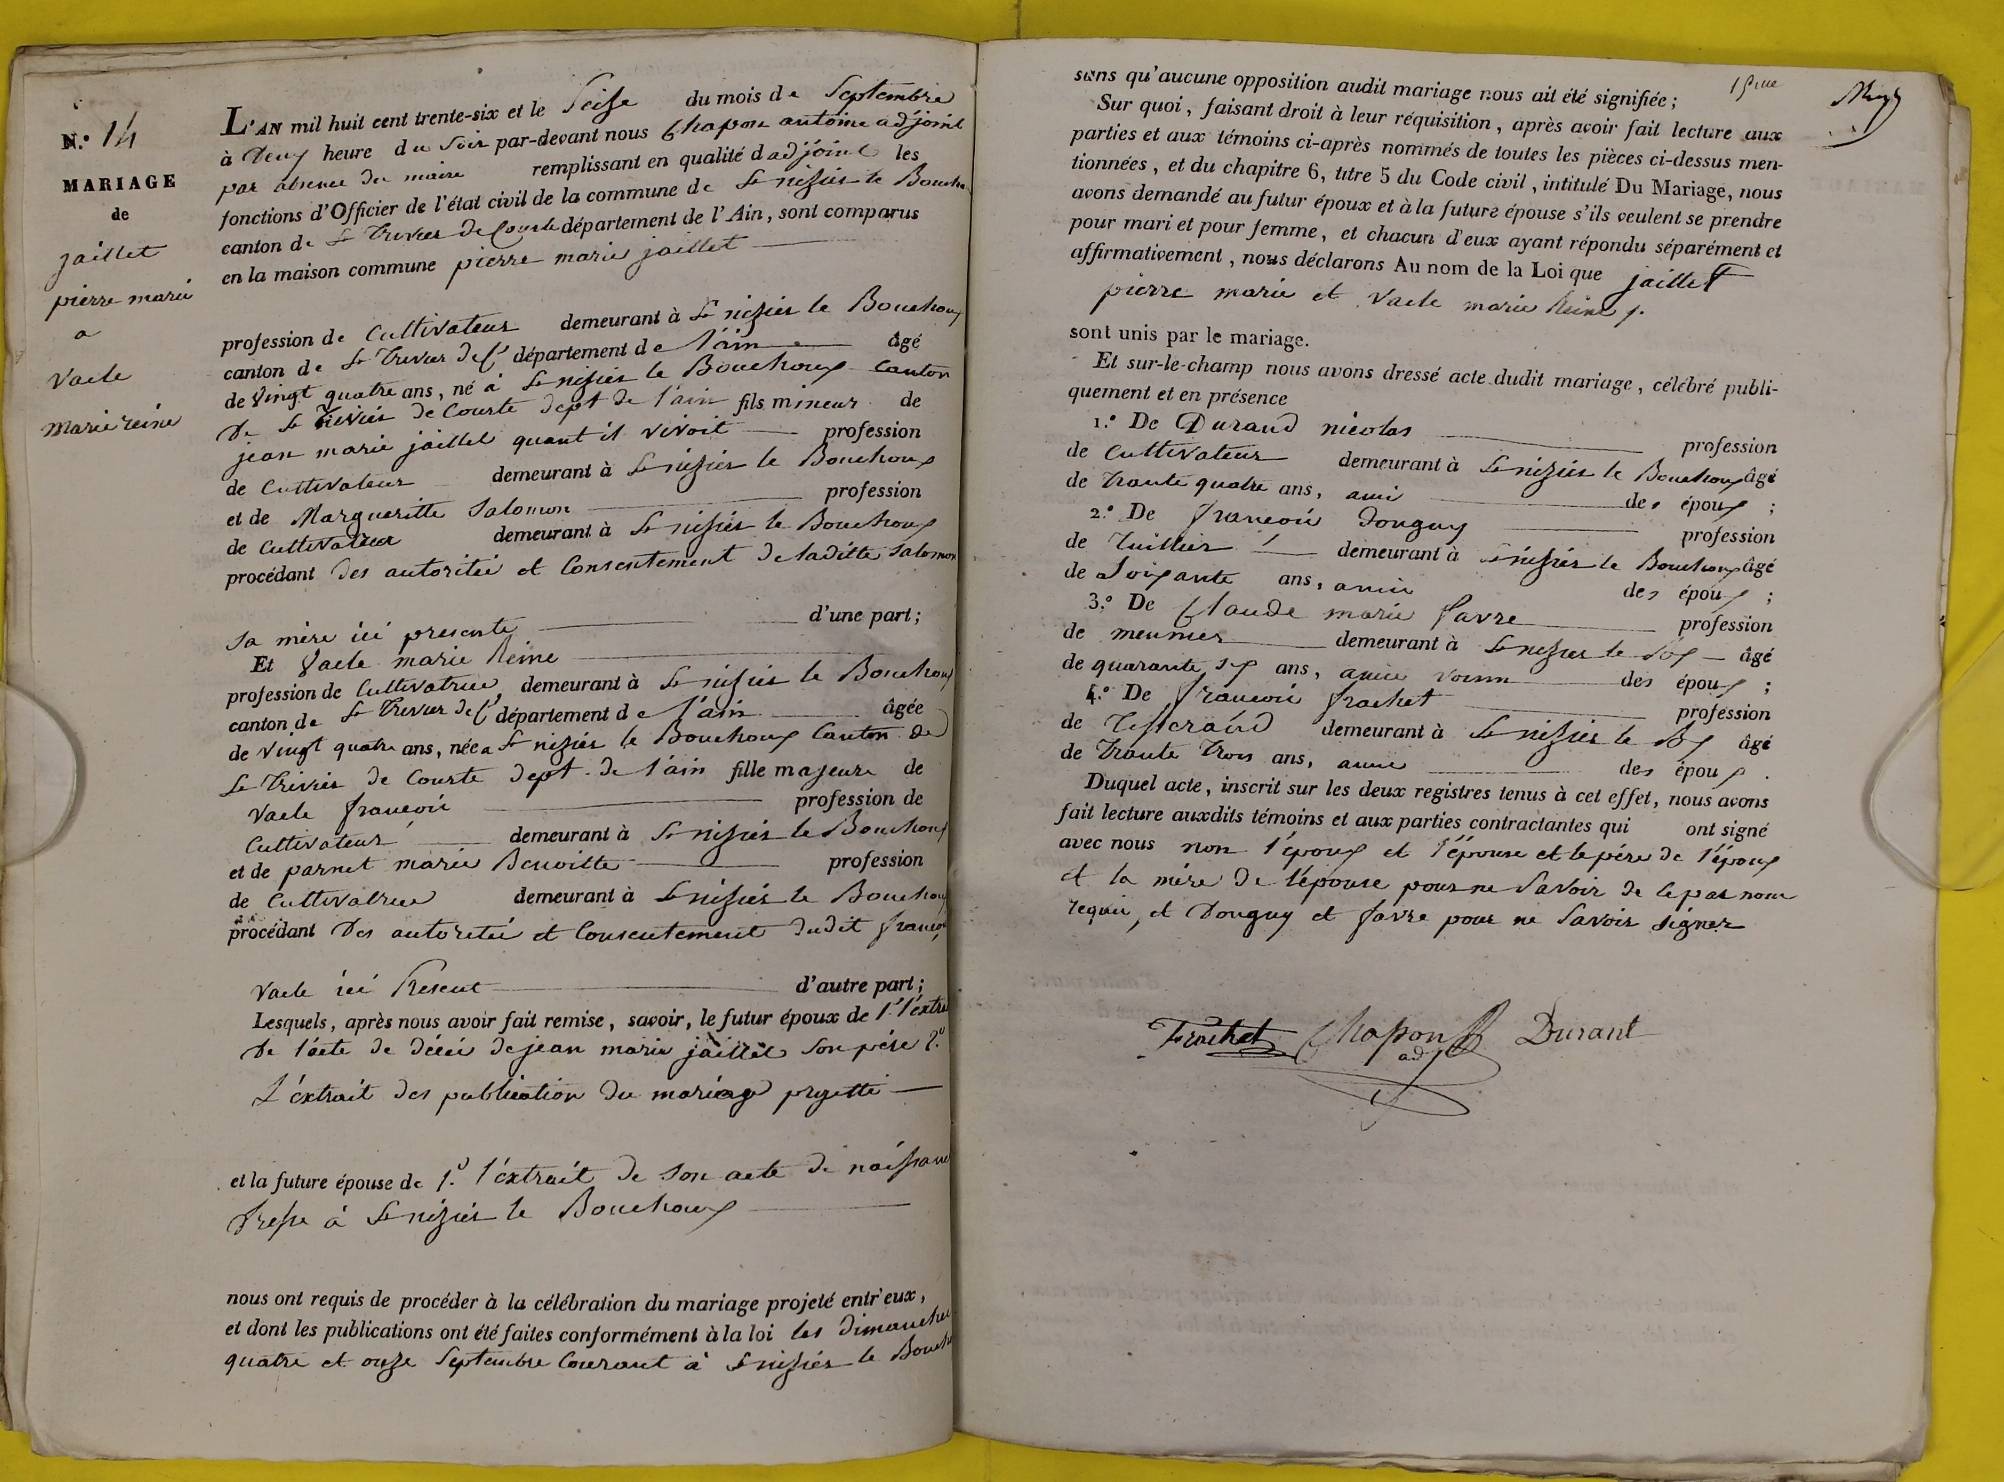 N.° 14
MARIAGE
de
jaillet
pierre marie
a
vacle
marie reine
L'AN mil huit cent trente-six et le Seise du mois de Septembre
à Deux heure du Soir par-devant nous Chapon antoine adjoint
par absence du maire remplissant en qualité d'adjoint les
fonctions d'Officier de l'état civil de la commune de St nizier le Bouchou
canton de St Trivier de Courte département de l'Ain, sont comparus
en la maison commune pierre marie jaillet
profession de Cultivateur demeurant à St nizier le Bouchoux
canton de St Trivier de C. département de l'ain âgé
de vingt quatre ans, né à St nizier le Bouchoux Canton
De St Trivier de Courte dept de l'ain fils mineur de
jean marie jaillet quant il vivoit profession
de Cultivateur demeurant à St nizier le Bouchoux
et de Margueritte Salomon profession
de Cultivatrice demeurant à St nizier le Bouchoux
procédant Des autoritée et Consentement De laditte Salomon
Sa mère ici presente d'une part;
Et Vacle marie Reine
profession de Cultivatrice, demeurant à St nizier le Bouchoux
canton de St Trivier de C. département de l'ain âgée
de vingt quatre ans, née a St nizier le Bouchoux Canton de
St Trivier de Courte dept. de l'ain fille majeure de
Vacle françois profession de
Cultivateur demeurant à St nizier le Bouchoux
et de parnet marie Benoitte profession
de Cultivatrice demeurant à St nizier le Bouchoux
procédant Des autoritée et Consentement dudit françois
Vacle ici Présent d'autre part;
Lesquels, après nous avoir fait remise, savoir, le futur époux de 1.° l'extrai
De l'acte de décé de jean marie jaillet Son père 2.°
L'éxtrait des publication du mariage projetté
et la future épouse de 1.° l'éxtrait de Son acte de naissance
dressé à St nizier le Bouchoux
nous ont requis de procéder à la célébration du mariage projeté entr'eux,
et dont les publications ont été faites conformément à la loi les dimanches
quatre et onze Septembre Courant à St nizier le Bouch
sans qu'aucune opposition audit mariage nous ait été signifiée;
Sur quoi, faisant droit à leur réquisition, après avoir fait lecture aux
parties et aux témoins ci-après nommés de toutes les pièces ci-dessus men-
tionnées, et du chapitre 6, titre 5 du Code civil, intitulé Du Mariage, nous
avons demandé au futur époux et à la future épouse s'ils veulent se prendre
pour mari et pour femme, et chacun d'eux ayant répondu séparément et
affirmativement, nous déclarons Au nom de la Loi que jaillet
pierre marie et Vacle marie Reine
sont unis par le mariage.
Et sur-le-champ nous avons dressé acte dudit mariage, célébré publi-
quement et en présence
1.° De Durand nicolas profession
de Cultivateur demeurant à St nizier le Bouchoux âgé
de Trante quatre ans, ami des époux;
2.° De françois Donguy profession
de Tuillier demeurant à St nizier le Bouchoux âgé
de Soixante ans, amie des époux;
3.° De Claude marie favre profession
de meunier demeurant à St nizier le Box âgé
de quarante six ans, amie voisin des époux;
4.° De françois frachet profession
de Tisserand demeurant à St nizier le Box âgé
de Trante Trois ans, amie des époux.
Duquel acte, inscrit sur les deux registres tenus à cet effet, nous avons
fait lecture auxdits témoins et aux parties contractantes qui ont signé
avec nous non l'époux et l'épouse et le père de l'époux
et la mère de l'épouse pour ne Savoir de ce par nous
requis, et Donguy et favre pour ne Savoir signer
Frachet Chapon Durant
adj